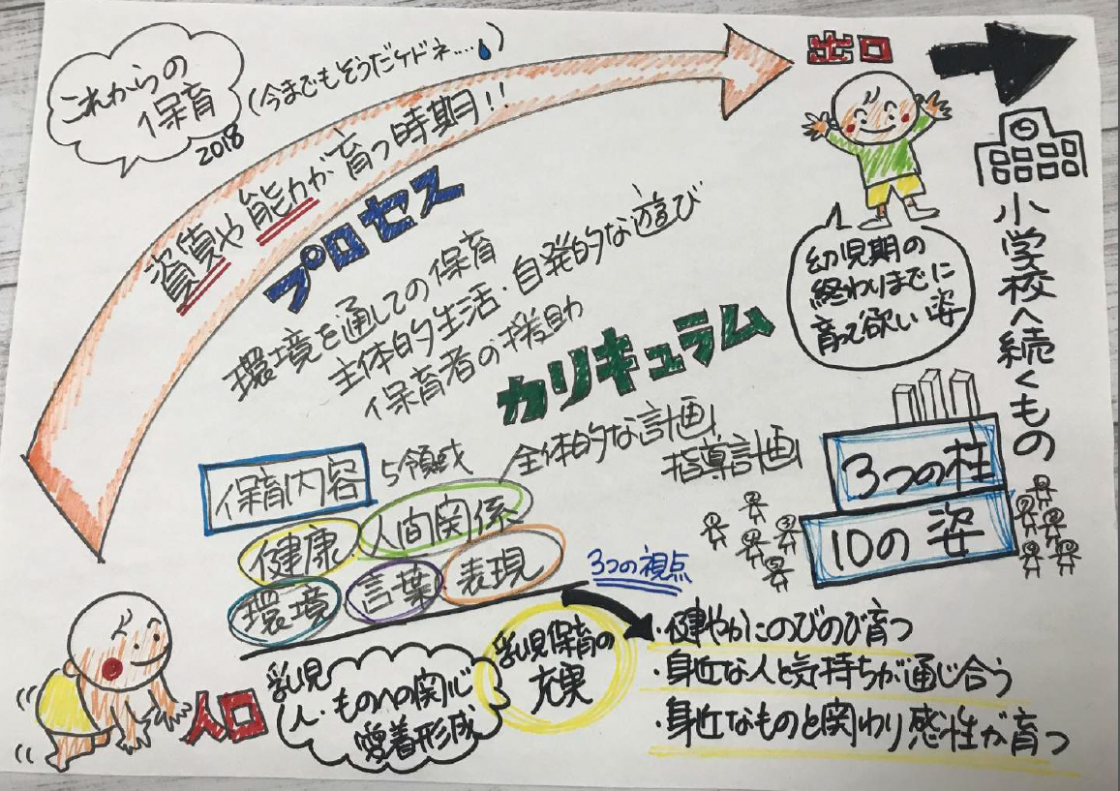 これからの
保育
2018
(今までもそうだケドネ....)
資質や能力が育つ時期!!
プロセス
環境を通しての保育
主体的生活・自発的な遊び
保育者の援助
カリキュラム
全体的な計画
指導計画
出口
小学校へ続くもの
幼児期の
終わりまでに
育って欲しい姿
3つの柱
10の姿
保育内容
5領域
健康
人間関係
環境
言葉
表現
入口
乳児
人・ものへの関心
愛着形成
乳児保育の
充実
3つの視点
・健やかにのびのび育つ
・身近な人と気持ちが通じ合う
・身近なものと関わり感性が育つ